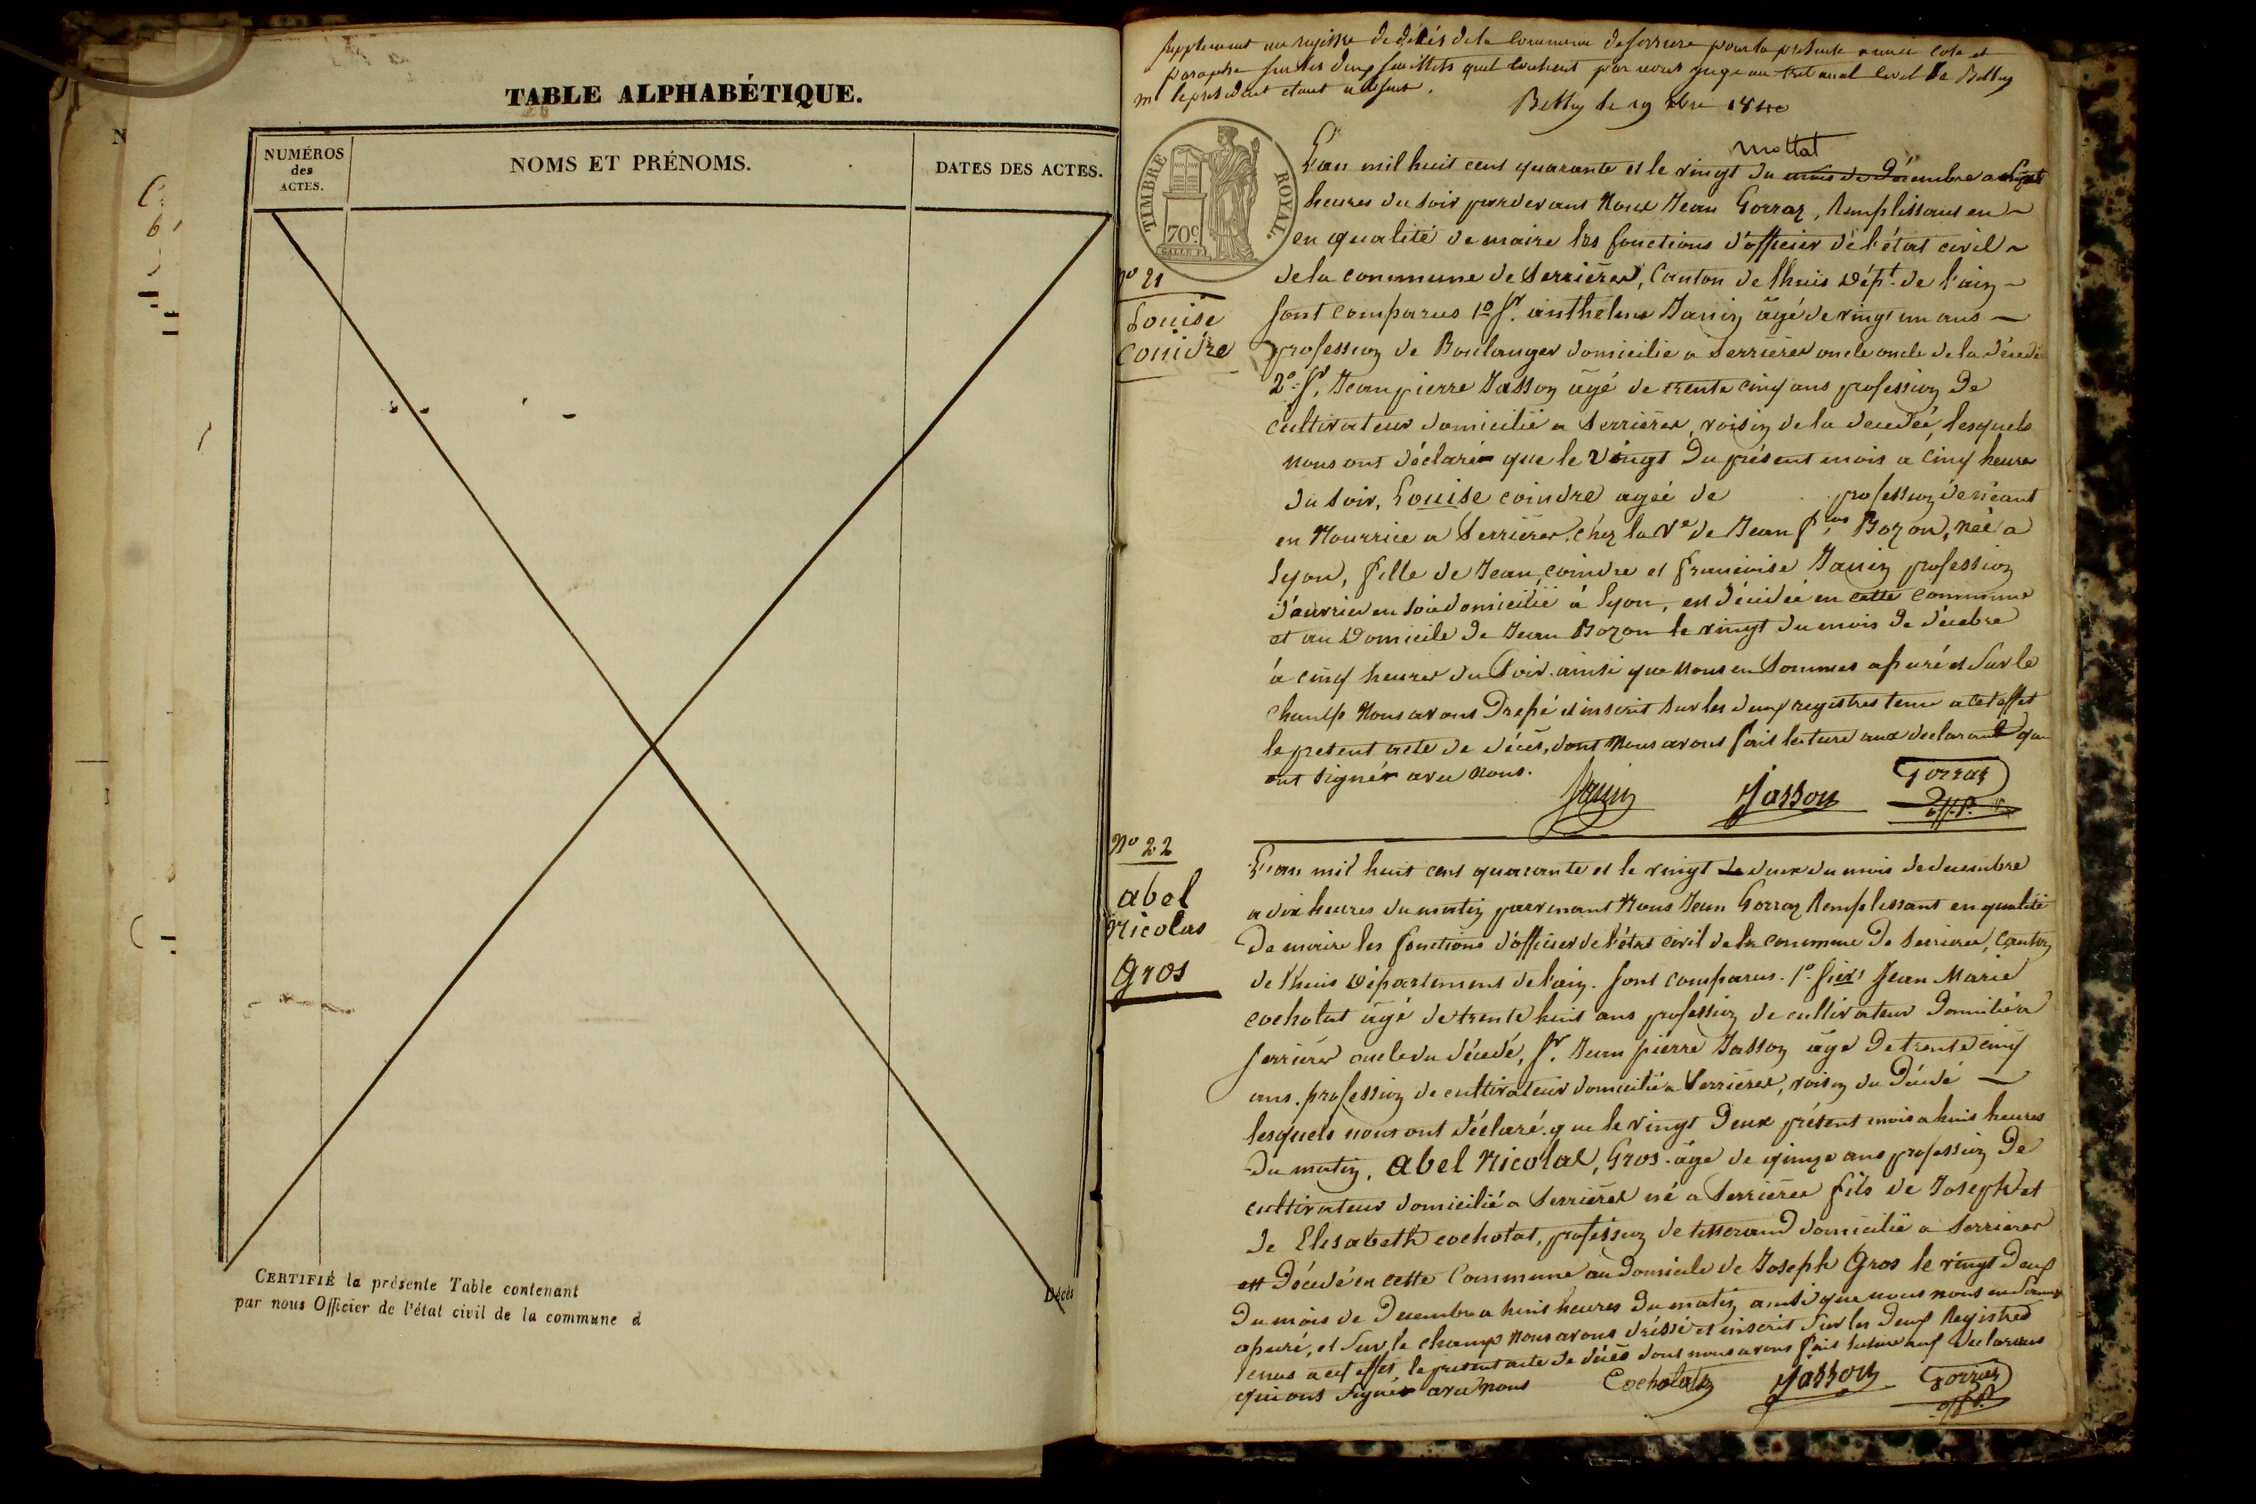 TABLE ALPHABÉTIQUE.
NUMÉROS
des
ACTES.
NOMS ET PRÉNOMS.
DATES DES ACTES.
CERTIFIÉ la présente Table contenant
Décès
par nous Officier de l'état civil de la commune d
Supplement au registre de décés de la Commune de serriere pour la presente année coté et
paraphé sur les deux feuillets quil contient par nous juge au tribunal civil de Belley
mr le president etant absent.
Belley le 19 xbre 1840
Mottat
TIMBRE ROYAL.
70c
L'an mil huit cent quarante et le vingt du mois de Décembre a sept
heures du soir pardevant Nous Jean Gorraz, Remplissant en
en qualité de maire les fonctions d'officier de l'état civil
de la commune de Serrières, Canton de lhuis dépt. de l'ain
No 21
Louise
Coindre
sont comparus 1o Sr. anthelme Janin âgé de vingt un ans
profession de Boulanger domicilie a Serrières oncle oncle de la décedée
2o Sr. Jean pierre Jasson âgé de trente cinq ans profession de
cultivateur domicilié a Serrières, voisin de la decedée, lesquels
nous ont déclaré que le Vingt du présent mois a cinq heures
du soir, Louise coindre agée de profession de néant
en Nourrice a Serrières chez la Ve de Jean fcois Bozon, née a
lyon, fille de Jean coindre et francoise Janin profession
d'ouvrier en soie domicilié à lyon, est décédée en cette commune
et au Domicile de Jean Bozon le vingt du mois de décebre
à cinq heures du Soir ainsi que nous en Sommes assuré et Sur le
champ Nous avons Dressé et inscrit sur les deux registres tenu a cet effet
le present acte de décès, dont Nous avons fait lecture aux declarant qui
ont signés avec nous.
Janin Jasson Gorraz
off. P.
No 22
abel
Nicolas
Gros
L'an mil huit cent quarante et le vingt de deux du mois de decembre
a dix heures du matin parvenant Nous Jean Gorraz Remplissant en qualité
De maire les fonctions d'officier de l'état civil de la commune De Serrieres, Canton
de l'huis Département de l'ain. sont comparus. 1o Sieur Jean Marie
cochotat âgé de trente huit ans profession de cultivateur Domicilié a
Serrières oncle du décedé, Sr. Jean pierre Jasson âgé De trente cinq
ans. profession de cultivateur domicilié a Serrières, voisin du Décedé
lesquels nous ont déclaré. que le vingt Deux présent mois a huit heures
Du matin, abel Nicolas, Gros âgé de quinze ans profession De
cultivateur domicilié a Serrières né a Serrières fils de Joseph et
de Elisabeth cochotat, profession de tisserand domicilié a Serrieres
est Décedé en cette Commune au Domicile de Joseph Gros le vingt Deux
Du mois de Decembre a huit heures Du matin ainsi que nous nous en Sommes
assuré, et Sur le champ Nous avons dréssé et inscrit Sur les Deux Registres
tenus a cet effet, le present acte de décès dont nous avons fait lecture aux declarans
qui ont Signés avec nous
Cochotat Jasson Gorraz
off. P.